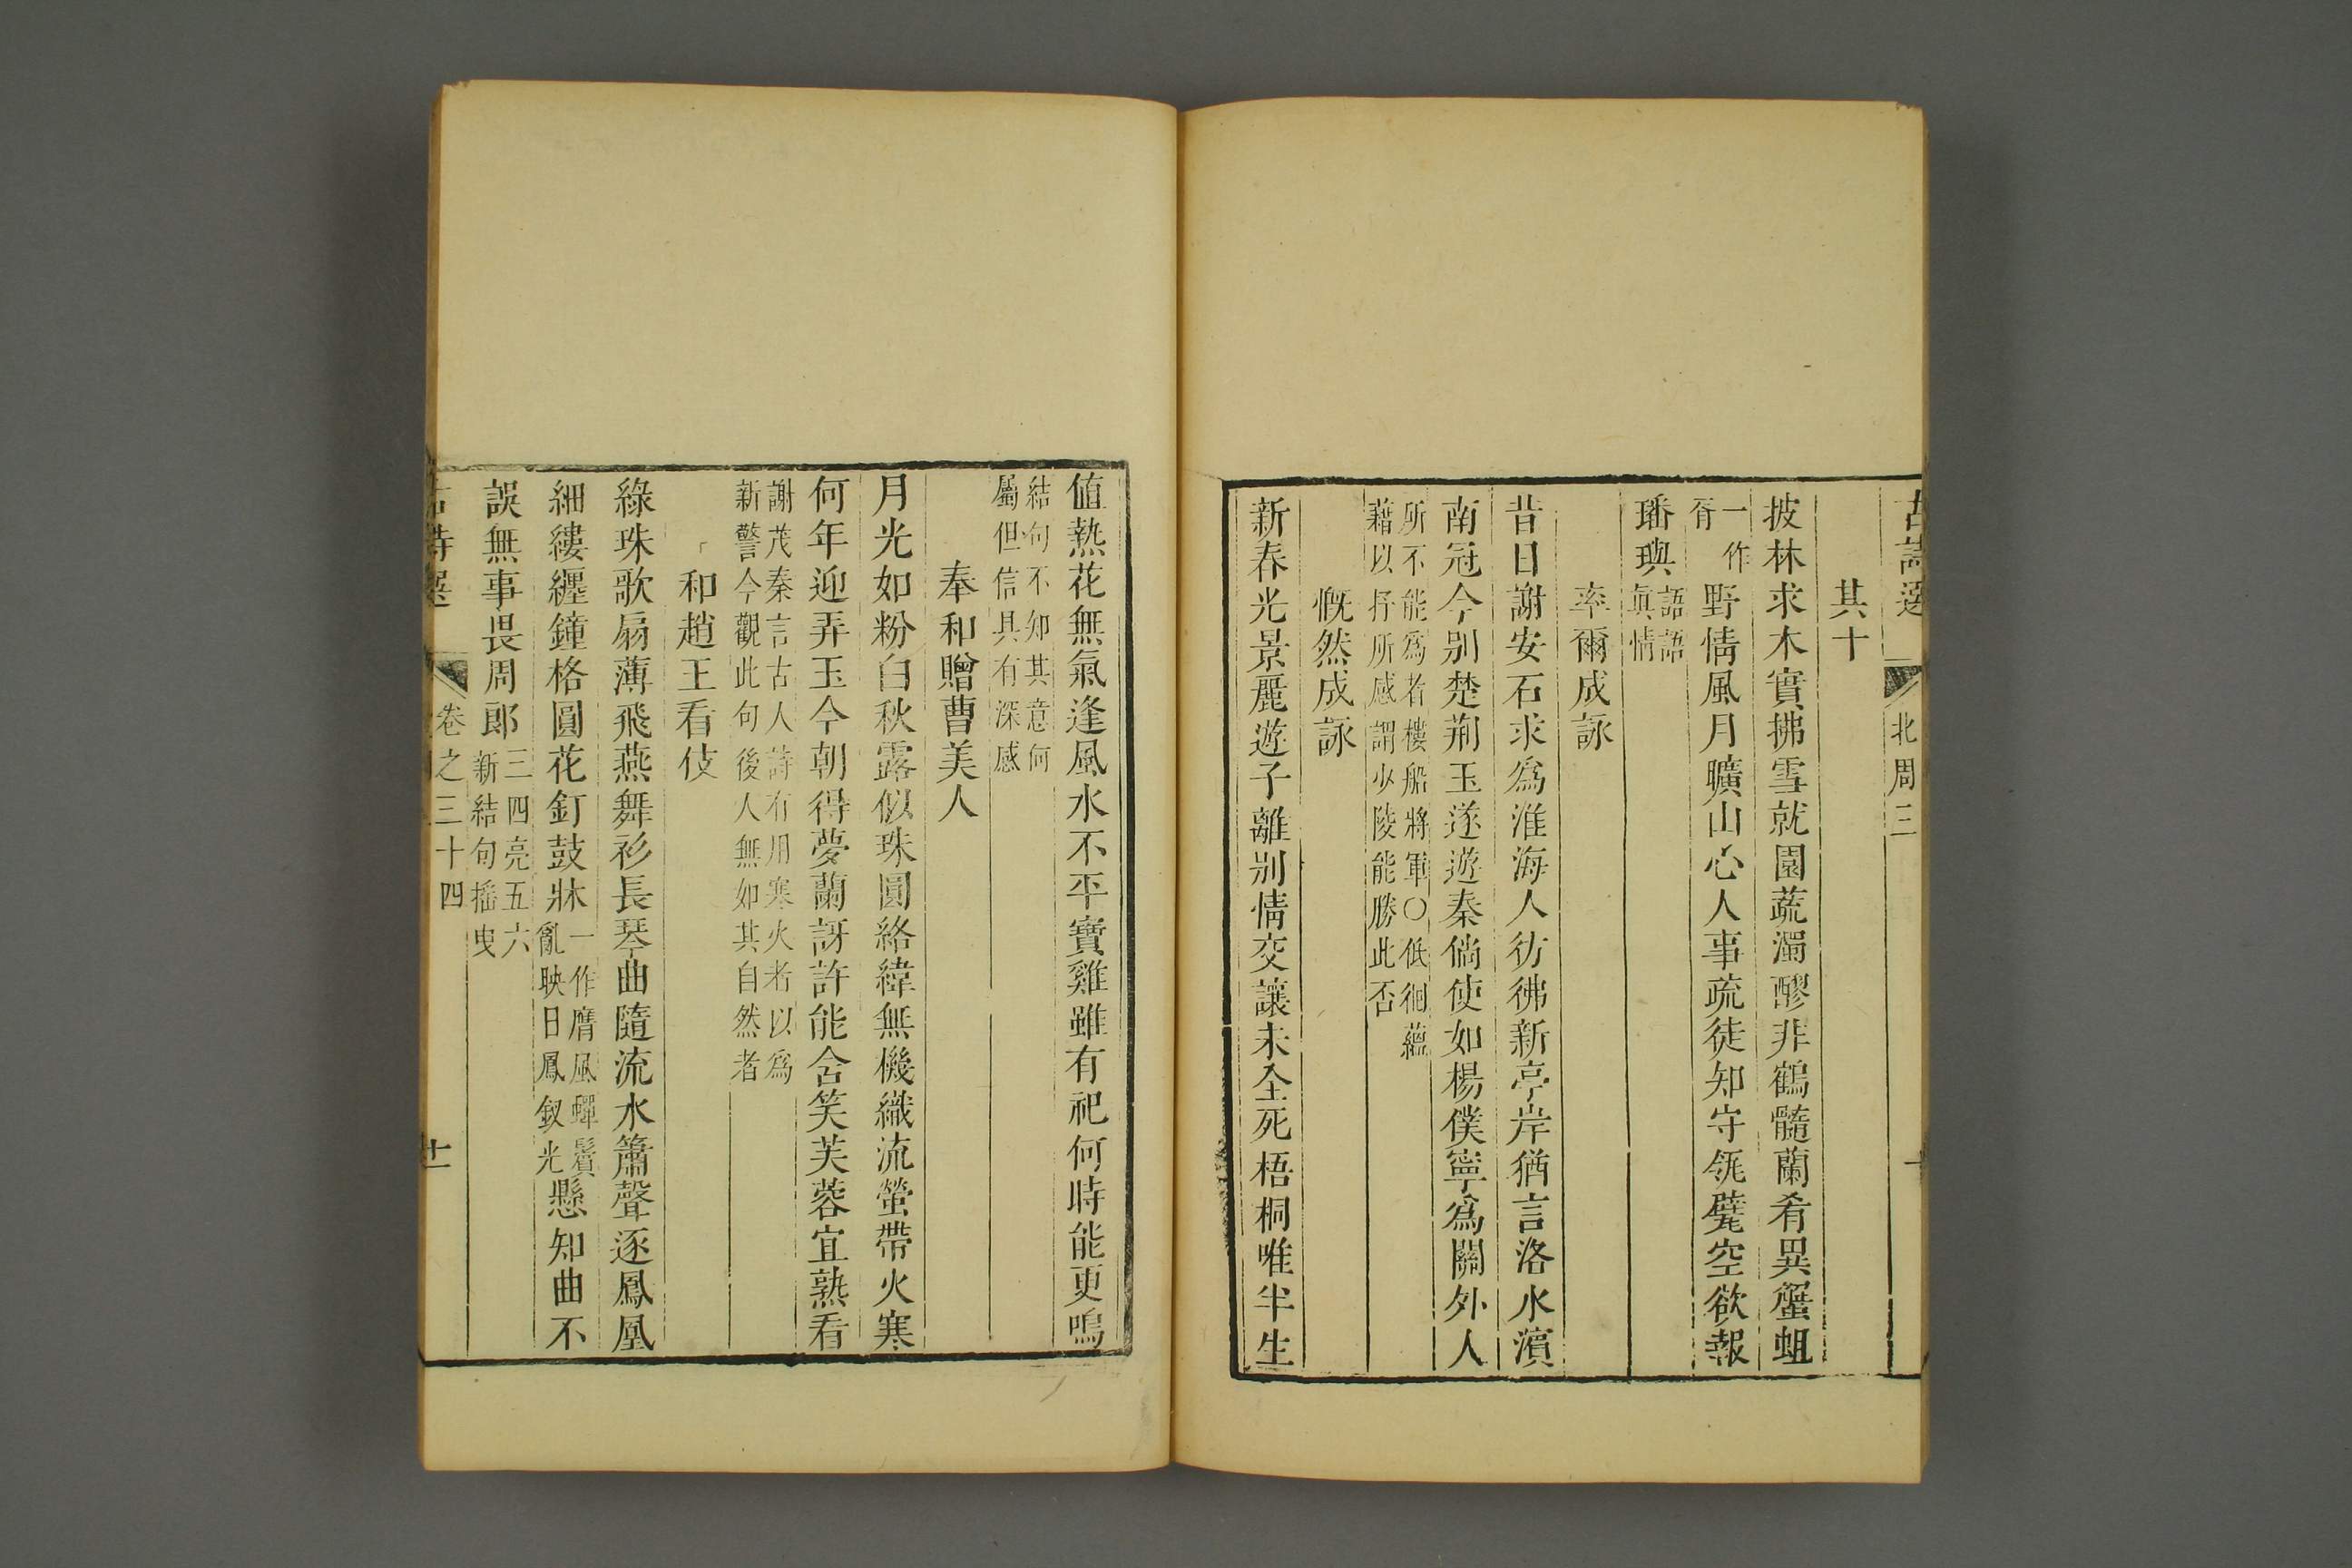 古詩選 北周三
其十
披林求木實拂雪就園蔬濁醪非鶴髓蘭肴異蟹蛆
一作
胥
野情風月曠山心人事疏徒知守瓴甓空欲報
璠璵
語語
真情
率爾成詠
昔日謝安石求爲淮海人彷彿新亭岸猶言洛水濱
南冠今別楚荊玉遂遊秦倘使如楊僕寧爲關外人
所不能爲者樓船將軍○低徊蘊
藉以抒所感謂少陵能勝此否
慨然成詠
新春光景麗遊子離別情交讓未全死梧桐唯半生
值熱花無氣逢風水不平寶雞雖有祀何時能更鳴
結句不知其意何
屬但信具有深感
奉和贈曹美人
月光如粉白秋露似珠圓絡緯無機織流螢帶火寒
何年迎弄玉今朝得夢蘭訝許能含笑芙蓉宜熟看
謝茂秦言古人詩有用寒火者以爲
新警今觀此句後人無如其自然者
和趙王看伎
綠珠歌扇薄飛燕舞衫長琴曲隨流水簫聲逐鳳凰
細縷纏鐘格圓花釘鼓牀
一作膺風蟬鬢
亂映日鳳釵光
懸知曲不
誤無事畏周郎
三四亮五六
新結句搖曳
古詩選 卷之三十四 十一